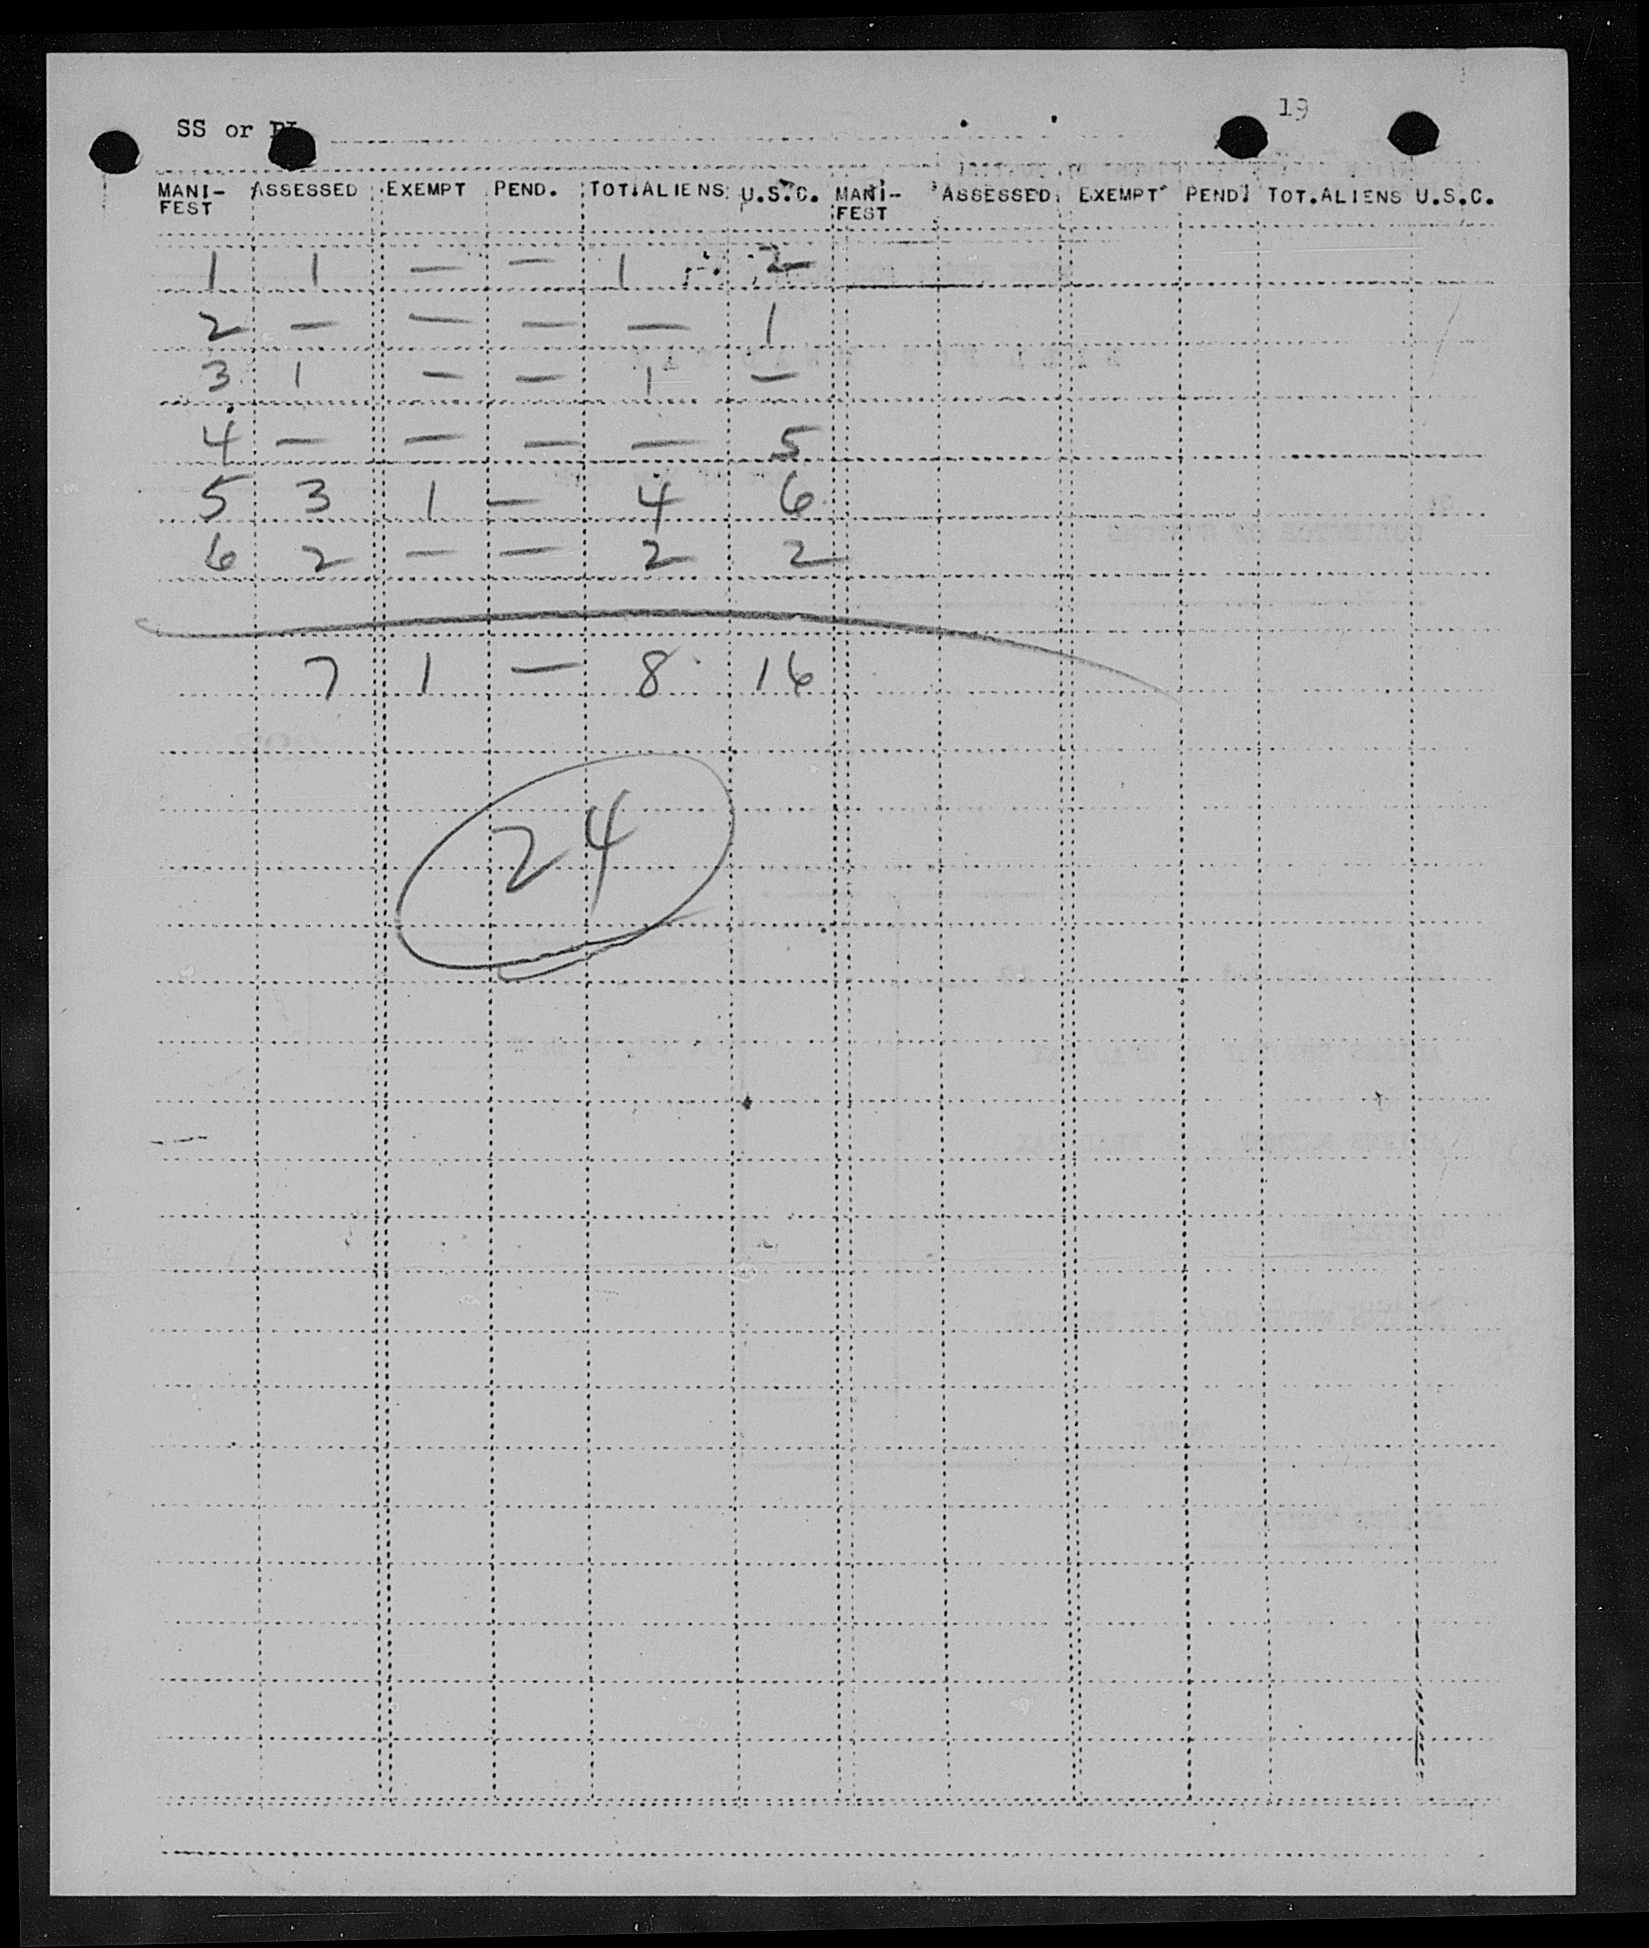 19
SS or
MANI-FEST ASSESSED EXEMPT PEND. TOT.ALIENS U.S.C. MANI-FEST ASSESSED EXEMPT PEND. TOT.ALIENS U.S.C.
1 1 — — 1 2
2 — — — — 1
3 1 — — 1 —
4 — — — — 5
5 3 1 — 4 6
6 2 — — 2 2
7 1 — 8 16
24